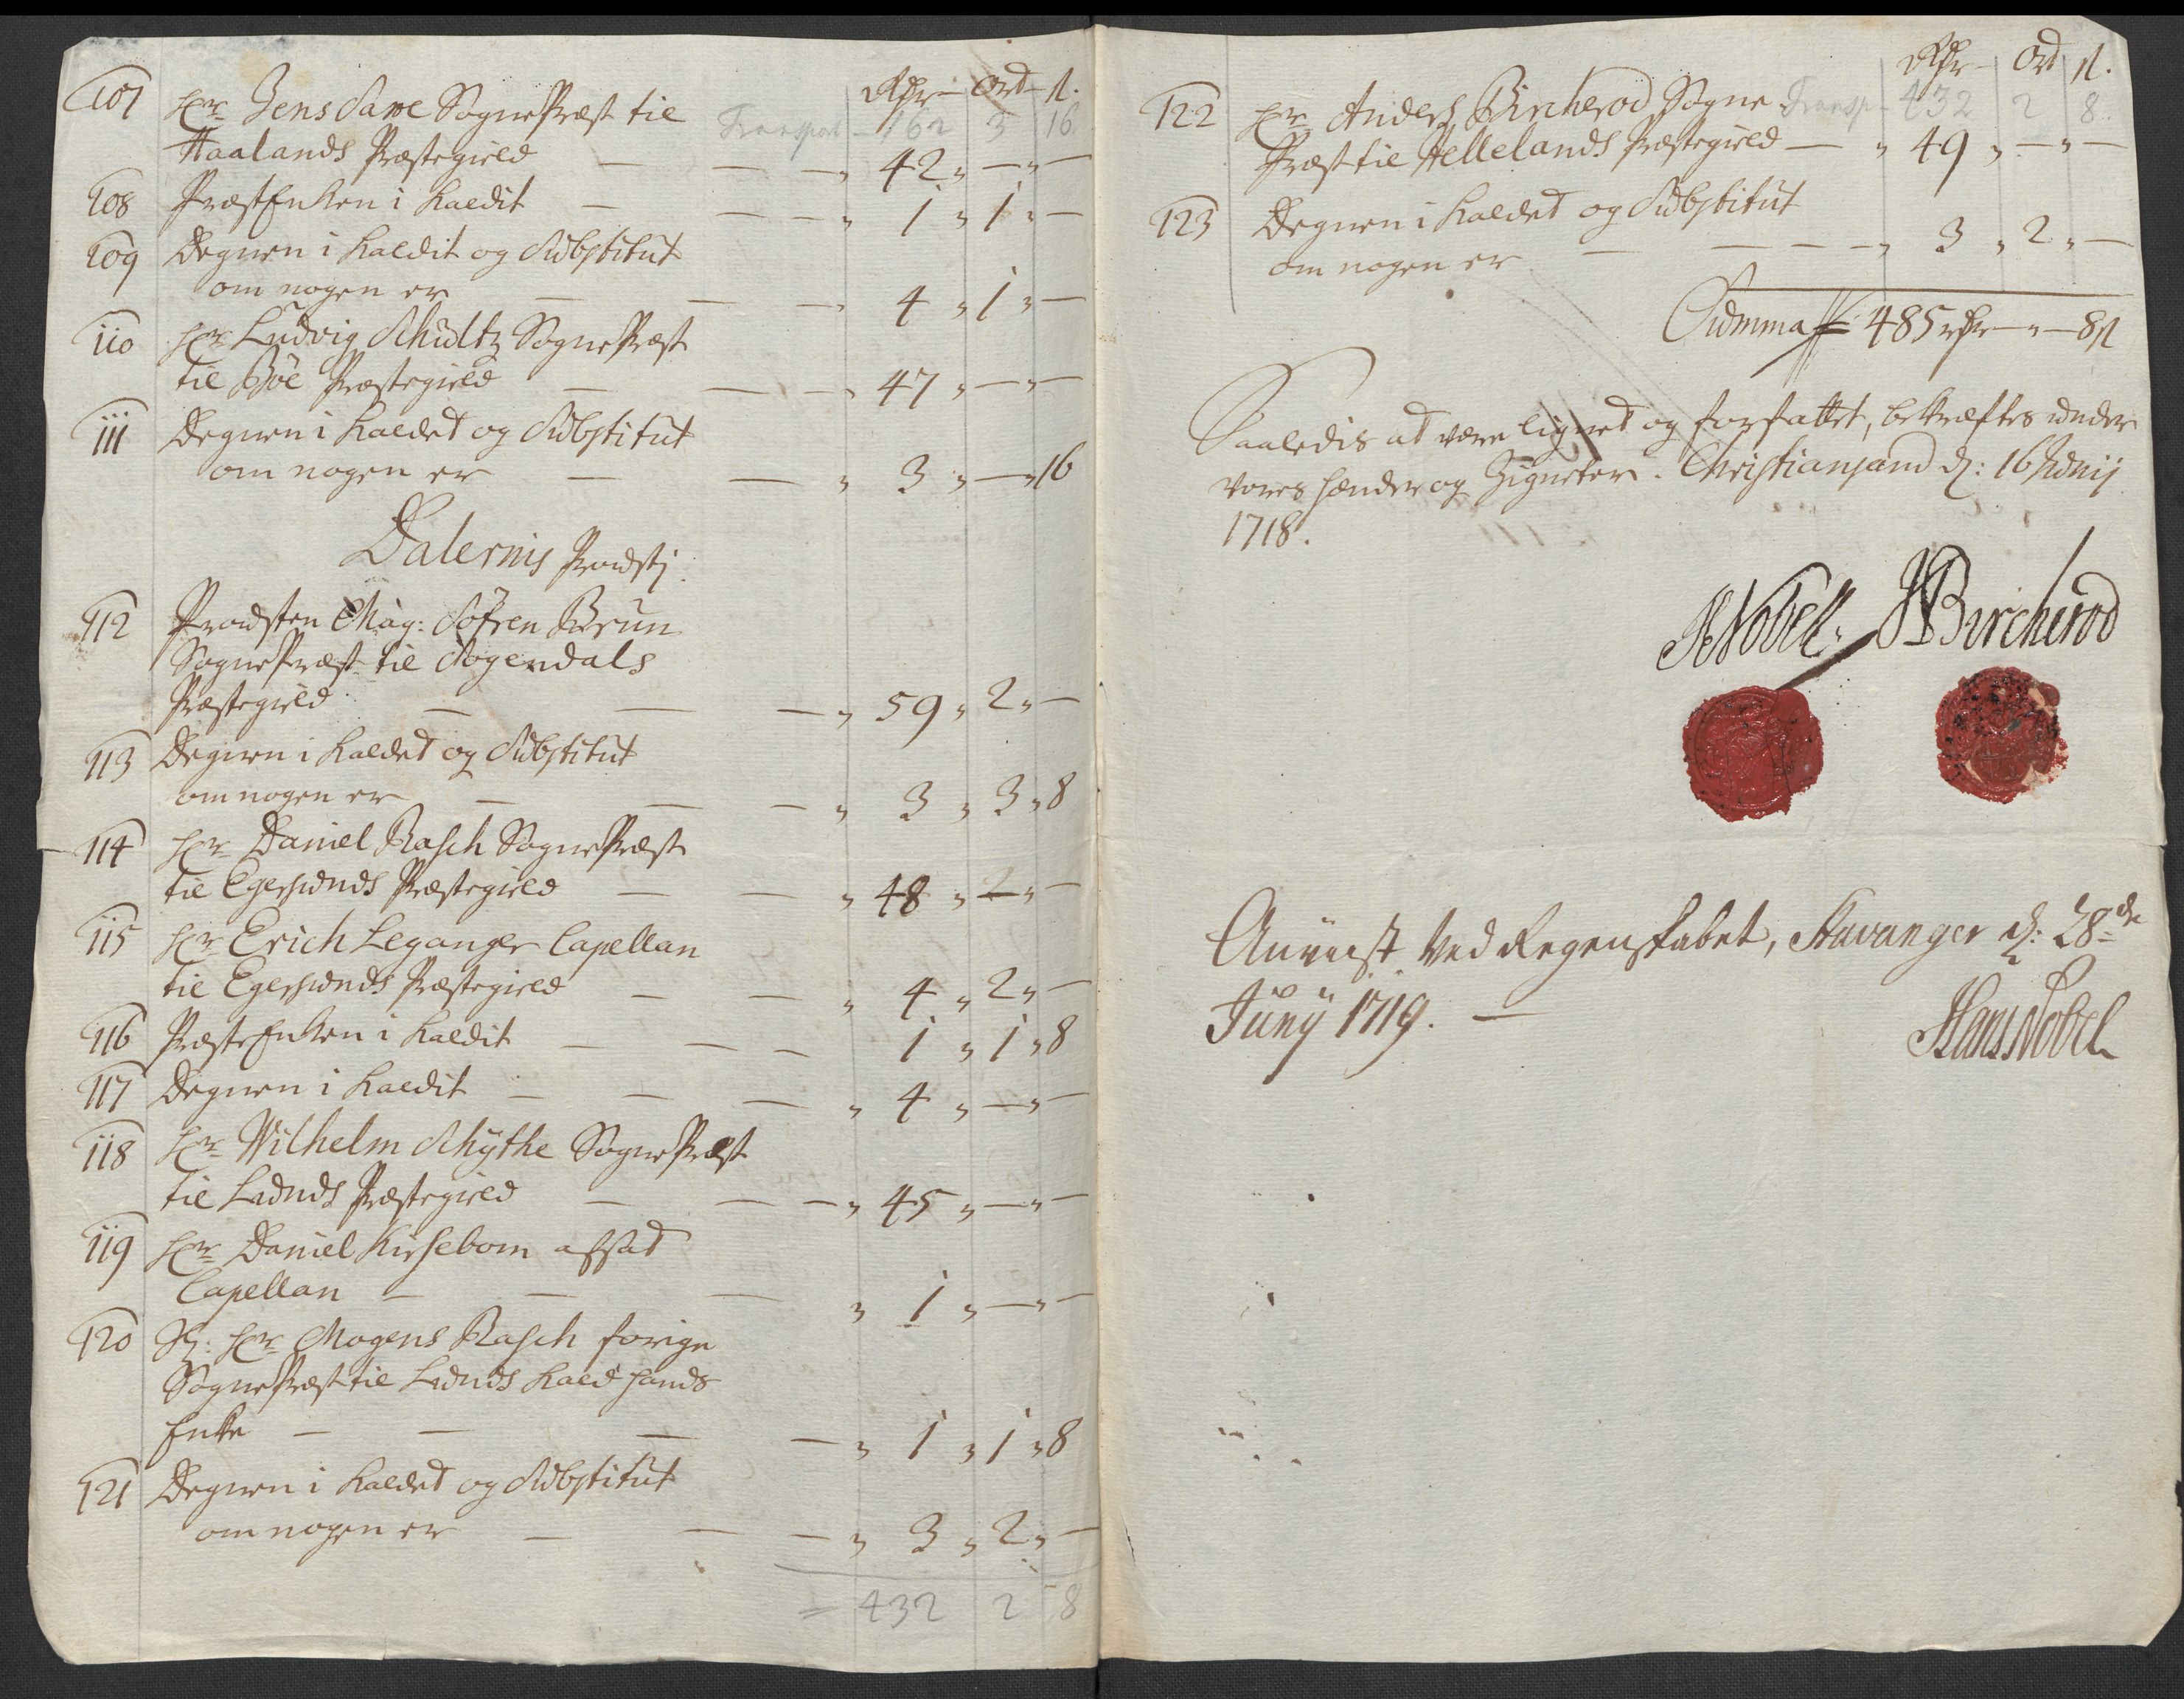 Rdr Ort ſl.
Transport 162 3 16
107 Hr Jens Sawe SognePræst til
Haalands Præstegield — — — „ 42 „ — „ —
108 PræstEnken i Kaldit — — — „ 1 „ 1 „ —
109 Degnen i Kaldit og Substitut
om nogen er — — — „ 4 „ 1 „ —
110 Hr Ludvig Schultz SognePræst
til Böe Præstegield — — — „ 47 „ — „ —
111 Degnen i Kaldet og Substitut
om nogen er — — „ 3 „ — „ 16
Dalernis Provstj
112 Provsten Mag: Söfren Brun
SognePræst til Sogendals
Præstegield — — — „ 59 „ 2 „ —
113 Degnen i Kaldet og Substitut
om nogen er — — — „ 3 „ 3 „ 8
114 Hr Daniel Rasch SognePræst
til Egersunds Præstegield — — „ 48 „ 2 „ —
115 Hr Erich Leganger Capellan
til Egersunds Præstegield — — „ 4 „ 2 „ —
116 PræsteEnken i Kaldit — — — 1 „ 1 „ 8
117 Degnen i Kaldit — — — „ 4 „ — „ —
118 Hr Wilhelm Schÿthe SognePræst
til Lunds Præstegield — — — „ 45 „ — „ —
119 Hr Daniel Kirsebom afsat
Capellan — — — „ 1 „ — „ —
120 Sl: Hr Mogens Rasch forige
SognePræst til Lunds Kald hands
Enke — — — — „ 1 „ 1 „ 8
121 Degnen i Kaldet og Substitut
om nogen er — — — „ 3 „ 2 „ —
= 432 2 8
Rdr Ort ſl.
122 Hr Anders Bircherod Sogne Transp 432 2 8.
Præst til Hellelands Præstegield — „ 49 „ — „ —
123 Degnen i Kaldet og Substitut
om nogen er — — — — „ 3 „ 2 „ —
Summa 485 rdr — „ — 8 ſl
Saaledis at være lignet og forfattet, bekræftes under
vores hænder og Zigneter. Christiansand d: 16 Junij
1718.
HNobell. JBircherod
Anviist Ved Regenskabet, Stavanger d: 28de
Junÿ 1719. —
Hans Nobel